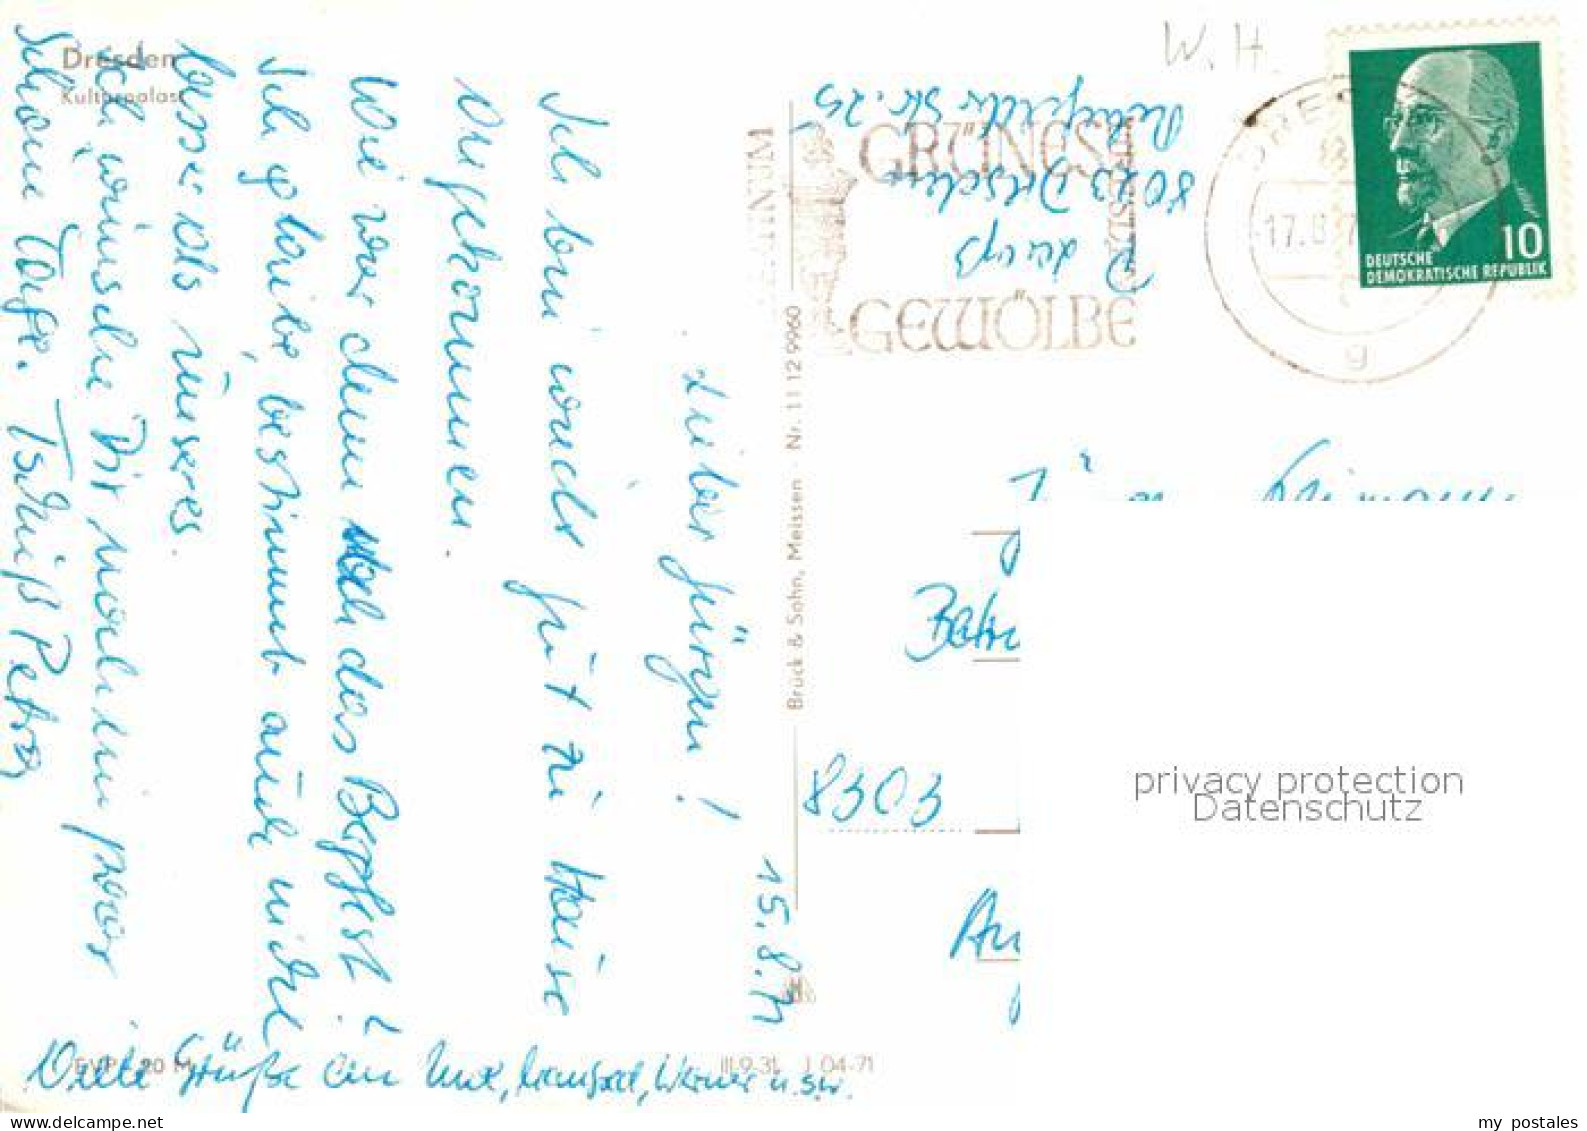 Dresden
Kulturpalast
15.8.71
Lieber Jürgen!
Ich bin wieder gut zu Hause
angekommen.
Wie war denn noch das Bergfest?
Ich glaube, bestimmt auch nicht
besser als unseres.
Ich wünsche Dir noch ein paar
schöne Tage. Tschüß Petra
Viele Grüße an Manfred, Werner u.s.w.
EVP 20 M
III-9-31 J 04-71
Bruck & Sohn, Meissen · Nr. 11 12 9960
8023 Dresden
Str. 25
W. H.
GRÜNES
GEWÖLBE
ALBERTINUM
17.8.7
g
10
DEUTSCHE
DEMOKRATISCHE REPUBLIK
8303
privacy protection
Datenschutz
www.delcampe.net
my_postales